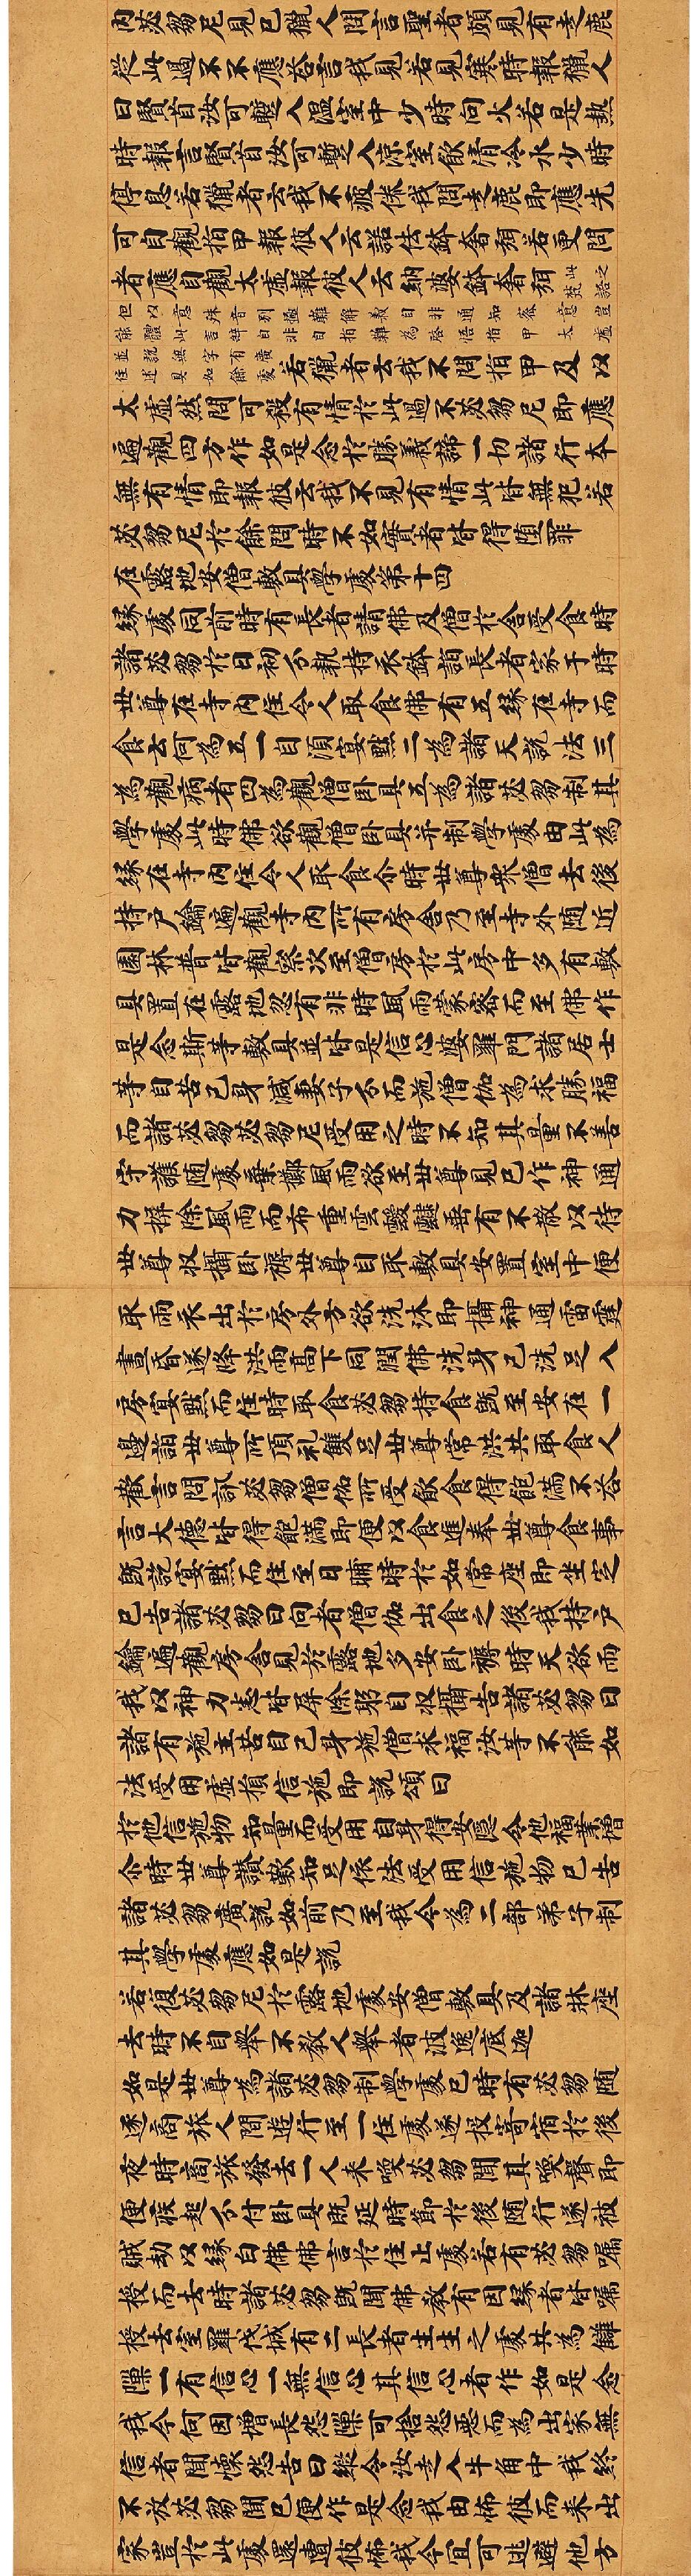 內苾芻尼見已獵人問言聖者頗見有走鹿
從此過不不應答言我見若見寒時報獵人
曰賢首汝可暫入溫室中少時向火若是熱
時報言賢首汝可暫入涼室飲清冷水少時
停息若獵者云我不疲倦我問走鹿即應先
可自觀指甲報彼人云諾佉鉢奢弭若更問
者應自觀太虛報彼人云納婆鉢奢弭
若獵者云我不問指甲及以
太虛然問可殺有情於此過不苾芻尼即應
遍觀四方作如是念於勝義諦一切諸行本
無有情即報彼云我不見有情此皆無犯若
苾芻尼於餘問時不如實者皆得墮罪
在露地安僧敷具學處第十四
緣處同前時有長者請佛及僧於舍受食時
諸苾芻於日初分執持衣鉢詣長者家于時
世尊在寺內住令人取食佛有五緣在寺而
食云何為五一自須宴默二為諸天說法三
為觀病者四為觀僧臥具五為諸苾芻制其
學處此時佛欲觀僧臥具并制學處由此為
緣在寺內住令人取食尒時世尊眾僧去後
持戶鑰遍觀寺內所有房舍乃至寺外隨近
園林普皆觀察次至僧房於此房中多有敷
具置在露地忽有非時風雨蒙密而至佛作
是念斯等敷具並皆是信心婆羅門諸居士
等自苦己身減妻子分而施僧伽為求勝福
而諸苾芻苾芻尼受用之時不知其量不善
守護隨處棄擲風雨欲至世尊見已作神通
力摒除風雨而布重雲靉靆垂有不散以待
世尊收攝臥褥世尊自取敷具安置室中便
取雨衣出於房外方欲洗沐即攝神通雷霆
晝昏遂降洪雨高下同潤佛洗身已洗足入
房宴默而住時取食苾芻持食既至安在一
邊詣世尊所頂礼雙足世尊常法共取食人
歡言問訊苾芻僧伽所受飲食得飽滿不答
言大德皆得飽滿即便以食進奉世尊食事
既訖宴默而住至日晡時於如常座即坐定
已告諸苾芻曰向者僧伽出食之後我持戶
鑰遍觀房舍見於露地多安臥褥時天欲雨
我以神力悉皆屏除躬自收攝告諸苾芻曰
諸有施主苦自己身施僧求福汝等不能如
法受用虛損信施即說頌曰
於他信施物 知量而受用 自身得安隱 令他福業增
尒時世尊讚歎知足依法受用信施物已告
諸苾芻廣說如前乃至我今為二部弟子制
其學處應如是說
若復苾芻尼於露地處安僧敷具及諸牀座
去時不自舉不教人舉者波逸底迦
如是世尊為諸苾芻制學處已時有苾芻隨
逐商旅人間遊行至一住處遂投寄宿於後
夜時商旅發去一人來喚苾芻聞其喚聲即
便疾起分付臥具既延時節於後隨行遂被
賊劫以緣白佛佛言於住止處若有苾芻囑
授而去時諸苾芻既聞佛教有因緣者皆囑
授去室羅伐城有二長者生生之處共為讎
隙一有信心一無信心其信心者作如是念
我今何因增長怨隙可捨怨惡而為出家無
信者聞懷怨告曰縱令汝走入牛角中我終
不放苾芻聞已便作是念我由怖彼而來出
家豈於此處還遭彼怖我今宜可逃避他方